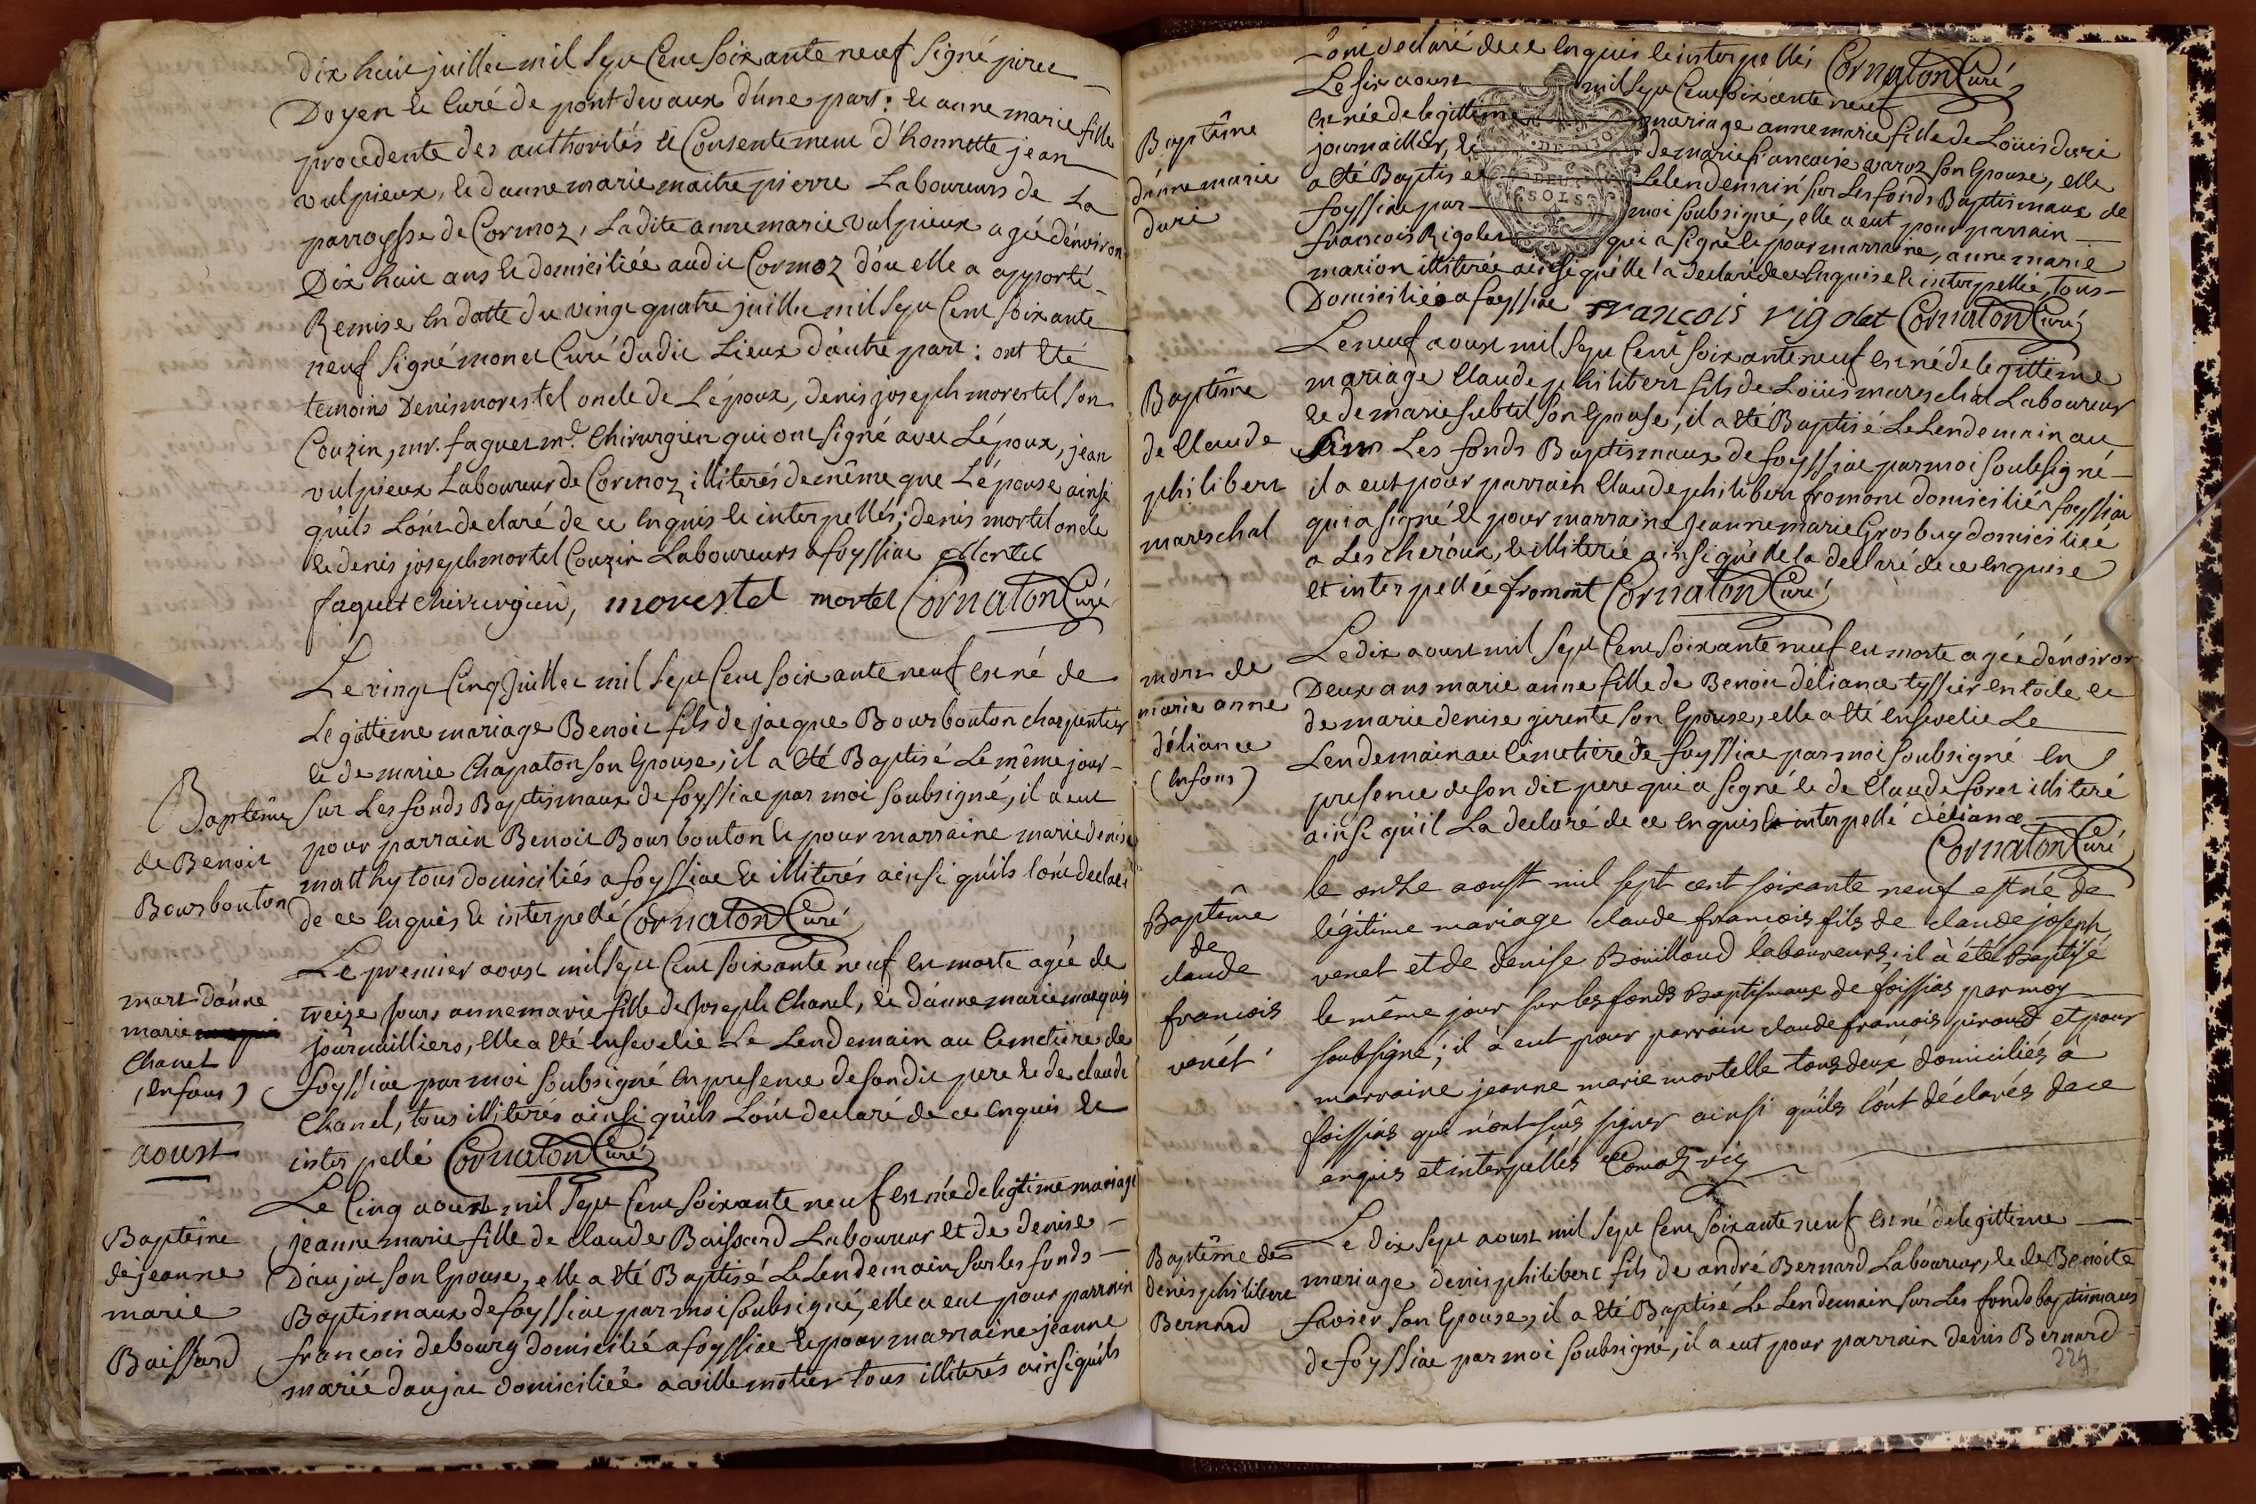 dix huit juillet mil sept Cent soixante neuf signé piret
Doyen et Curé de pont devaux d'une part: et anne marie fille
procedente des authorités et Consentement d'honnette jean
vulpieux, et d'anne marie maitrepierre Laboureurs de La
parroysse de Cormoz, Ladite anne marie vulpieux agée d'environ
Dix huit ans et domiciliée audit Cormoz d'ou elle a apporté
Remise en datte du vingt quatre juillet mil sept Cent soixante
neuf signé monet Curé dudit Lieux d'autre part: ont été
temoins Denis morestel oncle de L'époux, denis joseph morestel son
Couzin, mr. faguet md. Chirurgien qui ont signé avec L'époux, jean
vulpieux Laboureur de Cormoz illiterés de même que L'épouse ainsi
qu'ils L'ont declaré de ce enquis et interpellés; denis mortel oncle
et denis joseph mortel Couzin Laboureurs a foyssiac Mortel
faguet chirurgien, morestel mortel Cornaton Curé
Le vingt Cinq Juillet mil sept Cent soixante neuf est né de
Legitteme mariage Benoit fils de jacque Bourbouton charpentier
et de marie Chapaton son Epouse, il a été Baptisé Le même jour
Baptême
de Benoit
Bourbouton
sur Les fonds Baptismaux de foyssiac par moi soubsigné, il a eut
pour parrain Benoit Bourbouton et pour marraine marie denise
matthy tous domiciliés a foyssiac et illiterés ainsi qu'ils l'ont declaré
de ce enquis et interpellé Cornaton Curé
mort d'anne
marie
Chanel
(enfans)
Le premier aoust mil sept Cent soixante neuf est morte agée de
treize jours anne marie fille de Joseph Chanel, et d'anne marie marquis
journailliers, elle a été ensevelie Le Lendemain au Cimetiere de
foyssiac par moi soubsigné en presence de son dit pere et de claude
Chanel, tous illiterés ainsi qu'ils L'ont declaré de ce enquis et
interpellé Cornaton Curé
aoust
Baptême
de jeanne
marie
Baissard
Le Cinq aoust mil sept Cent soixante neuf est née de legitime mariage
jeanne marie fille de Claude Baissard Laboureur et de denise
Daujat son Epouse, elle a été Baptisé Le Lendemain sur les fonds
Baptismaux de foyssiac par moi soubsigné, elle a eut pour parrain
françois debourg domicilié a foyssiac et pour marraine jeanne
marie daujat domiciliée a villemotier tous illiterés ainsi qu'ils
L'ont declaré de ce enquis et interpellés Cornaton Curé
Baptême
d'anne marie
duri
Le six aoust mil sept Cent soixante neuf
est née de legittime mariage anne marie fille de Loüis duri
journaillier, et de marie francoise varoz son Epouse, elle
a été Baptisée Le lendemain sur Les fonds Baptismaux de
foyssiac par moi soubsigné, elle a eut pour parrain
francois Rigolet qui a signé et pour marraine, anne marie
marion illiterée ainsi qu'elle l'a declaré de ce enquise et interpellée, tous
Domiciliés a foyssiac francois rigolet Cornaton Curé
DEUX
SOLS
Baptême
de Claude
philibert
mareschal
Le neuf aoust mil sept Cent soixante neuf est né de legittime
mariage Claude philibert fils de Loüis mareschal Laboureur
et de marie subtil son Epouse, il a été Baptisé Le Lendemain au
sur Les fonds Baptismaux de foyssiac par moi soubsigné
il a eut pour parrain Claude philibert fromont domicilié a foyssiac
qui a signé et pour marraine Jeanne marie Grosbuy domiciliée
a Lescheroux, et illiterée ainsi qu'elle l'a declaré de ce enquise
et interpellée fromont Cornaton Curé
mort de
marie anne
déliance
(enfans)
Le dix aoust mil sept Cent soixante neuf est morte agée d'environ
Deux ans marie anne fille de Benoit déliance tyssier en toile et
de marie denise girente son Epouse, elle a été ensevelie Le
Lendemain au Cimetiere de foyssiac par moi soubsigné en
presence de son dit pere qui a signé et de Claude foret illiteré
ainsi qu'il La declaré de ce enquis et interpellé déliance
Cornaton Curé
Baptême
de
claude
francois
venét
le onze aoust mil sept cent soixante neuf est né de
légitime mariage claude francois fils de claude joseph
venet et de denise Boüilloud laboureurs, il à été Baptisé
le même jour sur les fonds Baptismaux de foissias par moy
soubsigné; il à eut pour parrain claude francois piroud et pour
marraine jeanne marie mortelle tous deux domiciliés à
foissias qui n'ont sus signer ainsi qu'ils l'ont déclarés de ce
enquis et interpellés Comoz vic
Baptême de
denis philibert
Bernard
Le dix sept aoust mil sept Cent soixante neuf est né de legittime
mariage denis philibert fils de andré Bernard Laboureur, et de Benoite
favier son Epouse, il a été Baptisé Le Lendemain sur Les fonds baptismaux
de foyssiac par moi soubsigné, il a eut pour parrain denis Bernard
224